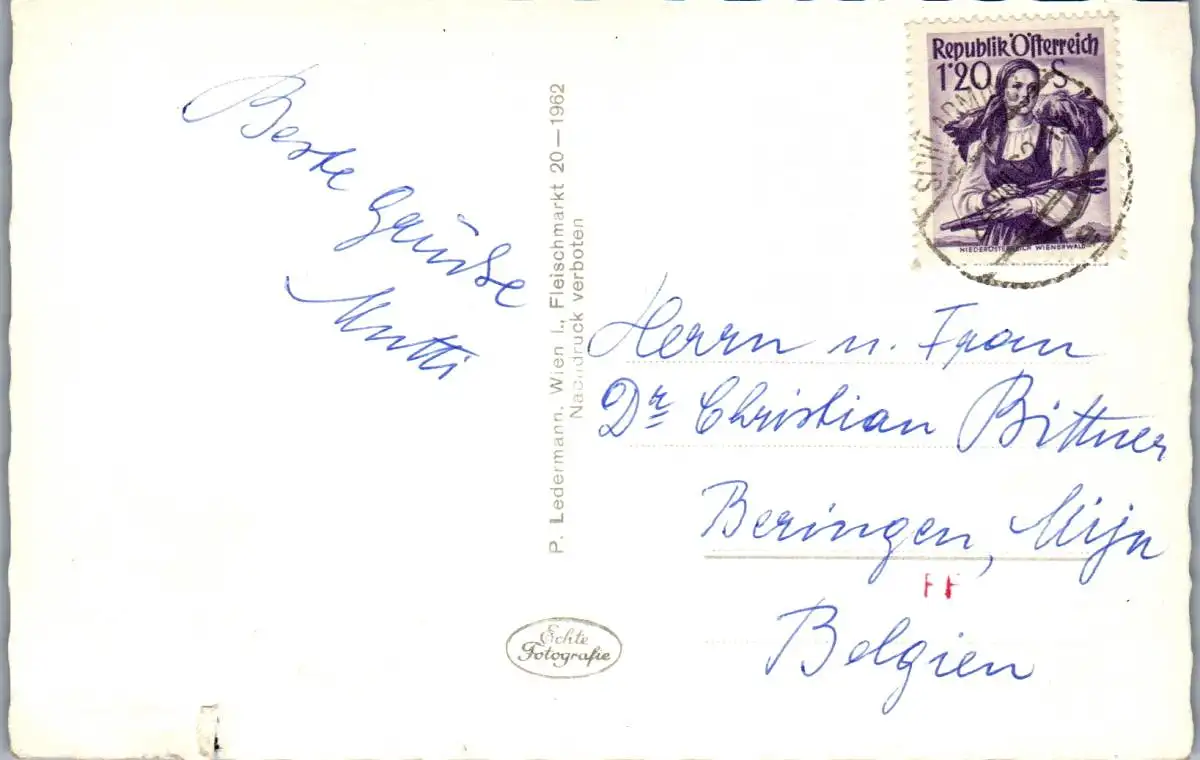 Beste Grüße
Mutti
P. Ledermann, Wien I., Fleischmarkt 20—1962
Nachdruck verboten
Echte
Fotografie
Republik Österreich
1'20 S
NIEDERÖSTERREICH WIENERWALD
Herrn u. Frau
Dr. Christian Bittner
Beringen, Mijn
Belgien